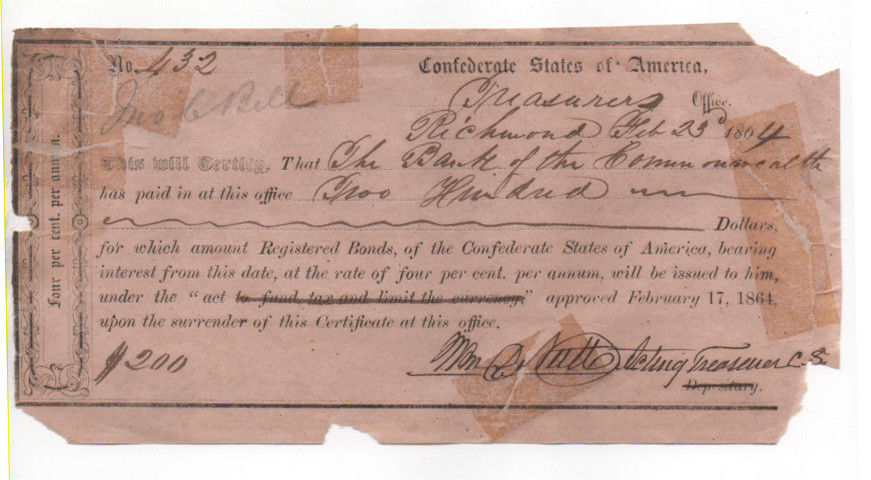 No. 432
Confederate States of America,
Treasurers Office.
Jno C Bell
Richmond Feb 23d 1864
This will Certify, That The Bank of the Commonwealth
has paid in at this office Two Hundred
Dollars,
for which amount Registered Bonds, of the Confederate States of America, bearing
interest from this date, at the rate of four per cent. per annum, will be issued to him,
under the "act to fund, tax and limit the currency," approved February 17, 1864,
upon the surrender of this Certificate at this office.
$200
Wm D. Nutt Acting Treasurer C.S.
Depositary.
Four per cent. per annum.